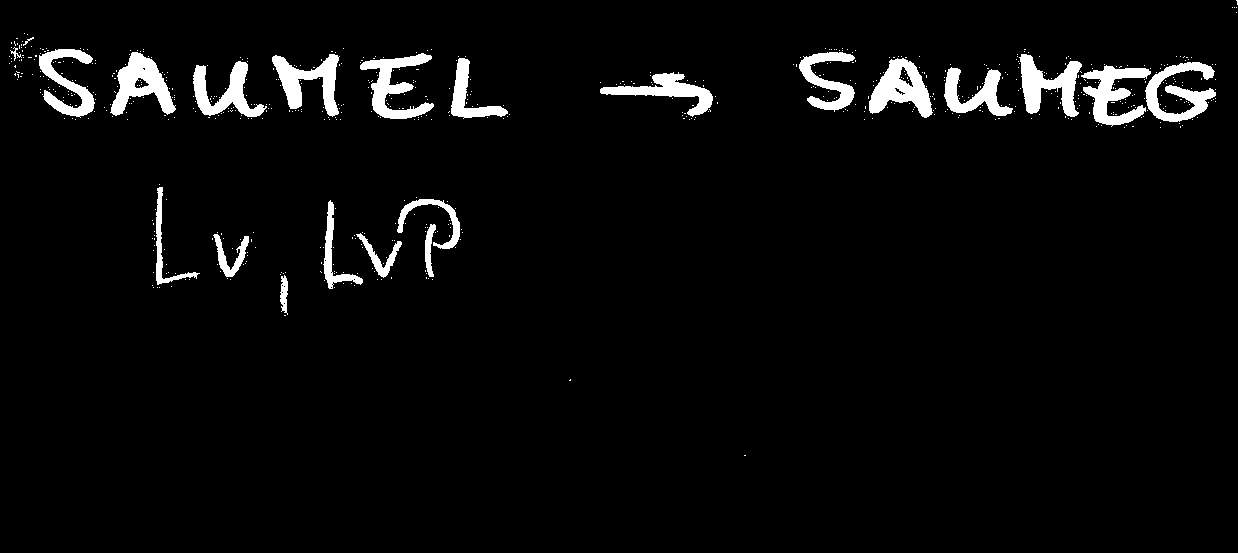 SAUMEL → SAUMEG
LV, LVP